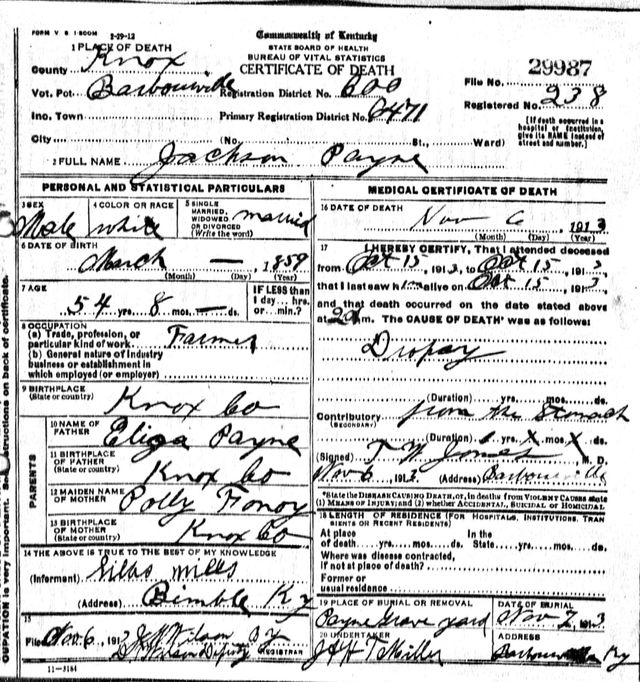 FORM V S 1-500M 2-19-12
Commonwealth of Kentucky
STATE BOARD OF HEALTH
BUREAU OF VITAL STATISTICS
CERTIFICATE OF DEATH
1 PLACE OF DEATH
County Knox
Vot. Pct. Barbourville Registration District No. 600
Inc. Town Primary Registration District No. 2471
File No. 29987
Registered No. 238
City (No. St., Ward)
[If death occurred in a
hospital or institution,
give its NAME instead of
street and number.]
2 FULL NAME Jackson Payne
PERSONAL AND STATISTICAL PARTICULARS
3 SEX Male
4 COLOR OR RACE white
5 SINGLE
MARRIED,
WIDOWED
OR DIVORCED
(Write the word) married
6 DATE OF BIRTH
March — , 1859
(Month) (Day) (Year)
7 AGE
54 yrs. 8 mos. — ds.
IF LESS than
1 day... hrs.
or... min.?
8 OCCUPATION
(a) Trade, profession, or
particular kind of work Farmer
(b) General nature of industry
business or establishment in
which employed (or employer)
9 BIRTHPLACE
(State or country) Knox Co
PARENTS
10 NAME OF
FATHER Payne
11 BIRTHPLACE
OF FATHER
(State or country) Knox Co
12 MAIDEN NAME
OF MOTHER Polly
13 BIRTHPLACE
OF MOTHER
(State or country) Knox Co
14 THE ABOVE IS TRUE TO THE BEST OF MY KNOWLEDGE
(Informant) Silas Mills
(Address) Bimble Ky
15
Filed Nov 6, 1913 Wilson By
Wilson Deputy REGISTRAR
11-3184
MEDICAL CERTIFICATE OF DEATH
16 DATE OF DEATH
Nov 6 1913
(Month) (Day) (Year)
17 I HEREBY CERTIFY, That I attended deceased
from Oct 15, 1913, to Oct 15, 1913
that I last saw him alive on Oct 15, 1913
and that death occurred on the date stated above
at 2 a m. The CAUSE OF DEATH* was as follows:
Dropsy
(Duration) yrs. mos. ds.
Contributory from the Stomach
(SECONDARY)
(Duration) 1 yrs. X mos. X ds.
(Signed) T W Jones M. D.
Nov 6, 1913 (Address) Barbourville
*State the DISEASE CAUSING DEATH, or, in deaths from VIOLENT CAUSES state
(1) MEANS OF INJURY; and (2) whether ACCIDENTAL, SUICIDAL or HOMICIDAL
18 LENGTH OF RESIDENCE (FOR HOSPITALS, INSTITUTIONS, TRAN
SIENTS OR RECENT RESIDENTS)
At place In the
of death yrs. mos. ds. State yrs. mos. ds.
Where was disease contracted,
if not at place of death?
Former or
usual residence
19 PLACE OF BURIAL OR REMOVAL
Payne Grave yard
DATE OF BURIAL
Nov 7, 1913
20 UNDERTAKER
Miller
ADDRESS
Barbourville Ky
OUPATION is very important. See instructions on back of certificate.